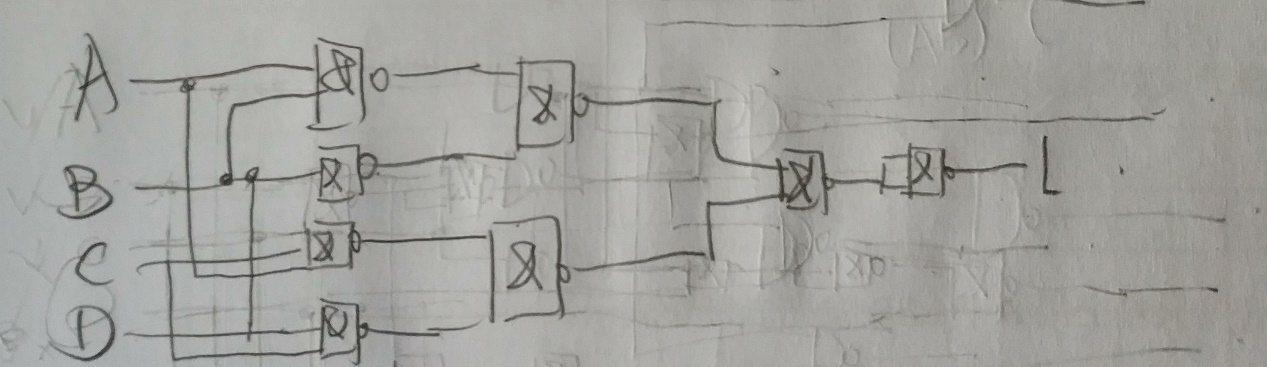 A
&
&
B
&
C
&
&
D
&
&
&
L